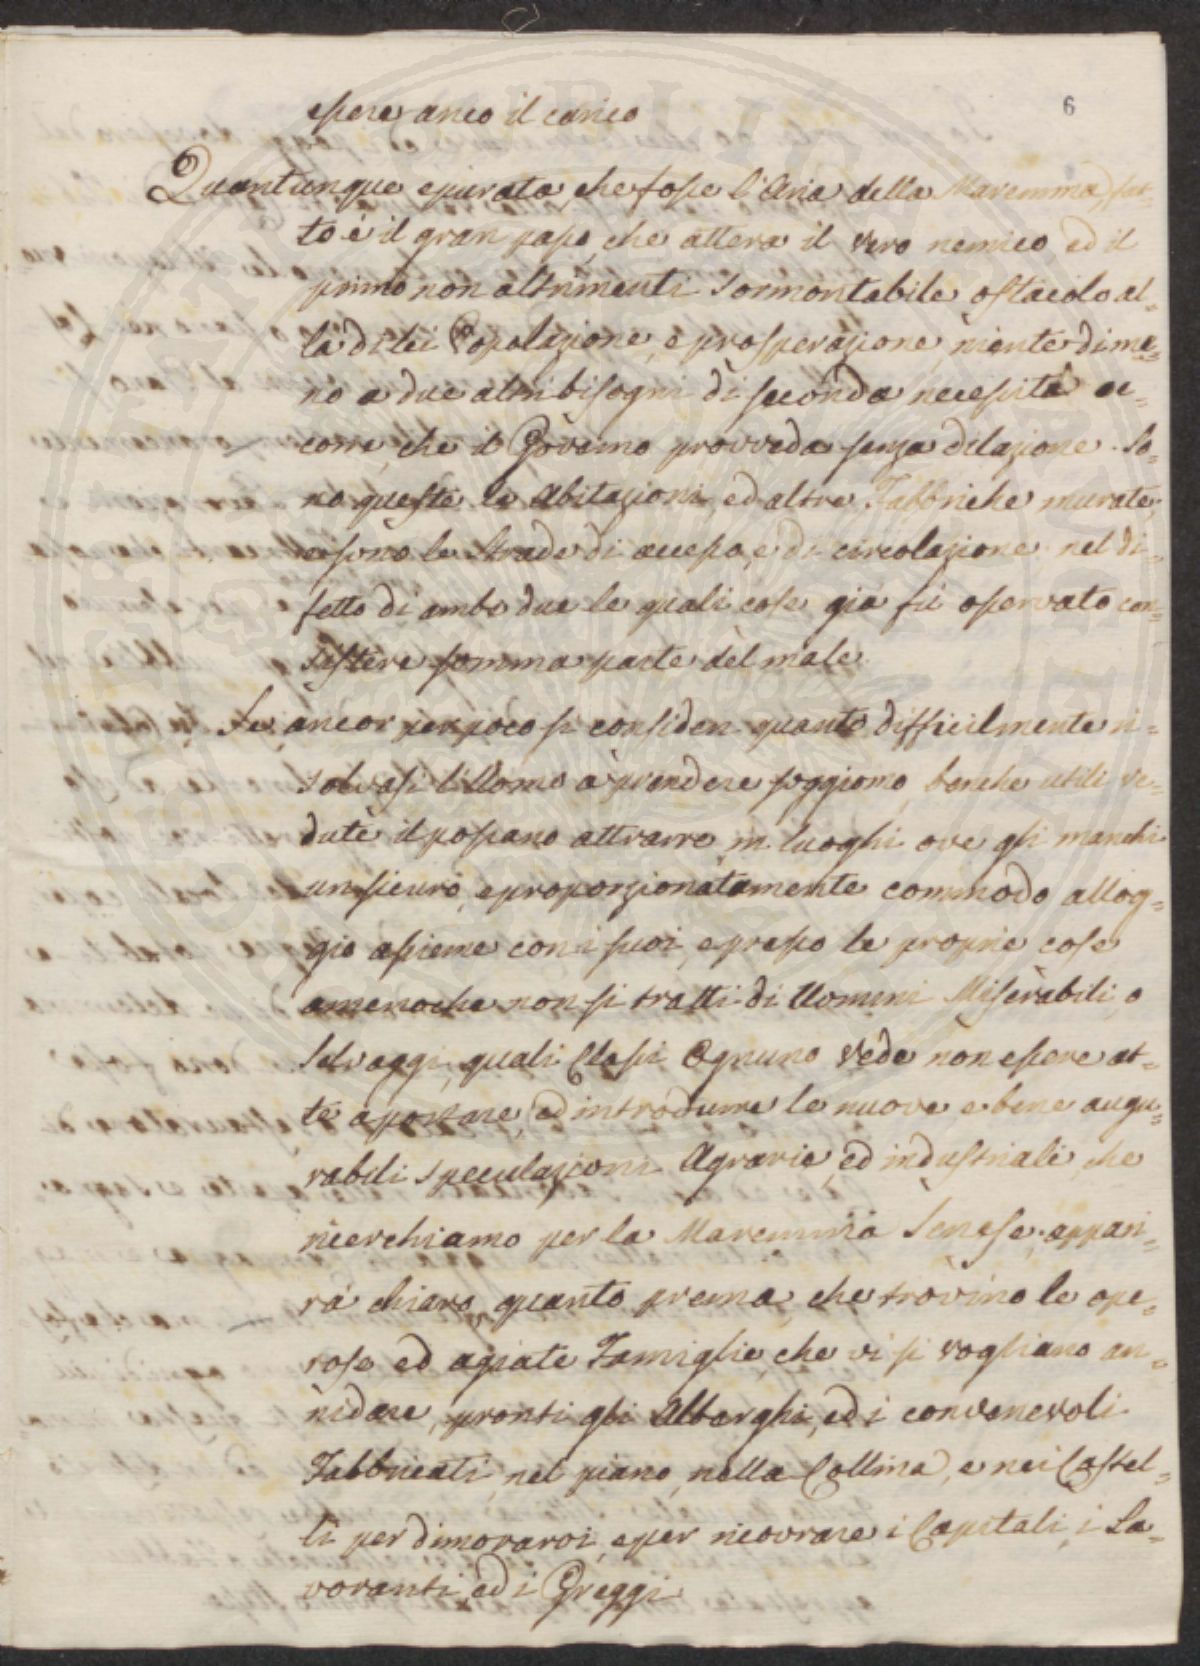 6
essere anco il carico
Quantunque epurata, che fosse l'Aria della Maremma, fat-
to è il gran passo, che atterra il vero nemico ed il
primo non altrimenti sormontabile ostacolo al-
la di lei Popolazione, e prosperazione, niente dime-
no a due altri bisogni di seconda necessità oc-
corre, che il Governo provveda senza dilazione. So-
no queste le Abitazioni, ed altre Fabbriche murate,
e sono le Strade di accesso, e di circolazione, nel di-
fetto di ambe due le quali cose già fù osservato con-
sistere somma parte del male.
Se ancor per poco si consideri quanto difficilmente ri-
solvasi l'Uomo à prendere soggiorno, benche utili ve-
dute il possano attrarre, in luoghi ove gli manchi
un sicuro, e proporzionatamente commodo allog-
gio assieme con i suoi, e presso le proprie cose
amenoche non si tratti di Uomini Miserabili, o
Selvaggi, quali Classi Ognuno vede non essere at-
te a portare, ed introdurre le nuove, e bene augu-
rabili speculazioni Agrarie, ed industriali, che
ricerchiamo per la Maremma Senese, appari-
rà chiaro, quanto prema, che trovino le ope-
rose ed agiate Famiglie, che vi si vogliano an-
nidare, pronti gli Alberghi, ed i convenevoli
Fabbricati, nel piano, nella Collina, e nei Castel-
li per dimorarvi, e per ricovrare i Capitali, i La-
voranti, ed i Greggi.